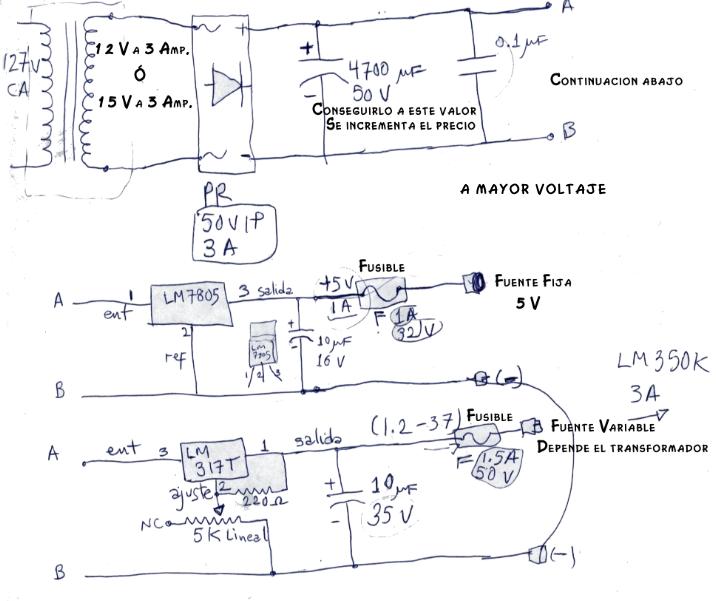 127V
CA
12 V A 3 AMP.
Ó
15 V A 3 AMP.
~ +
~ -
+
-
4700 µF
50 V
CONSEGUIRLO A ESTE VALOR
SE INCREMENTA EL PRECIO
0.1 µF
A
CONTINUACION ABAJO
B
A MAYOR VOLTAJE
PR
50V IP
3 A
A
ent
1
LM7805
3 salida
2
ref
LM
7805
1 2 3
+
-
10 µF
16 V
+5V
1A
FUSIBLE
F 1A
32V
FUENTE FIJA
5 V
B
(-)
LM350K
3A
A
ent 3
LM
317T
1 salida
ajuste 2
220Ω
NC
5K Lineal
+
-
10 µF
35 V
(1.2-37)
FUSIBLE
F= 1.5A
50 V
FUENTE VARIABLE
DEPENDE EL TRANSFORMADOR
B
(-)